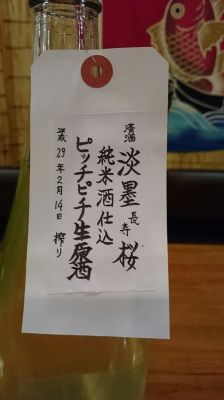 清酒
淡墨桜
長寿
純米酒仕込
ピッチピチ生原酒
平成29年2月14日 搾り